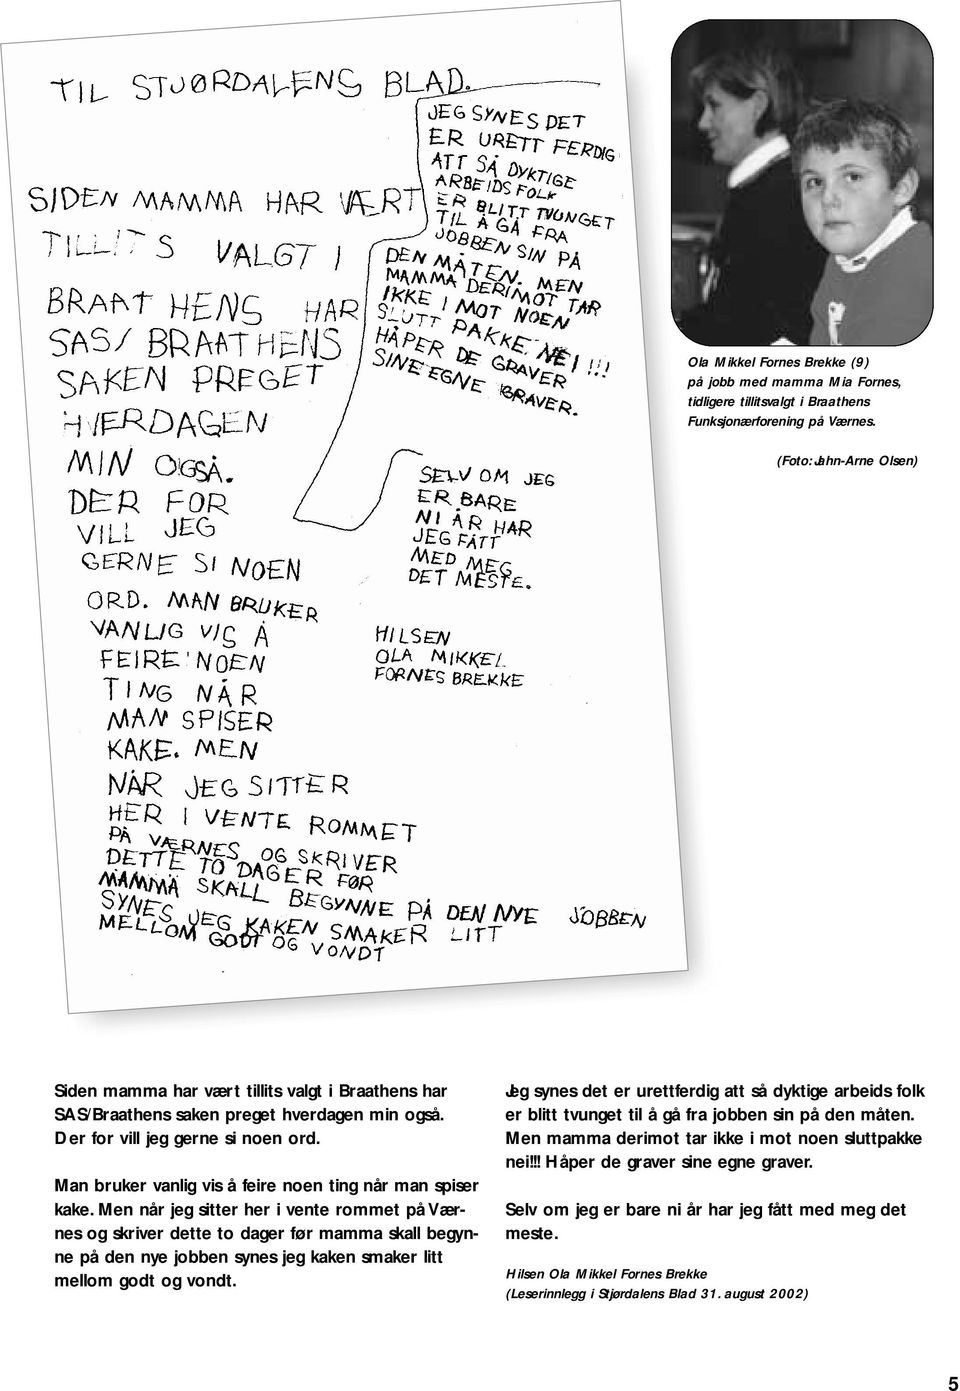 TIL STJØRDALENS BLAD.
SIDEN MAMMA HAR VÆRT
TILLITS VALGT I
BRAAT HENS HAR
SAS/ BRAATHENS
SAKEN PREGET
HVERDAGEN
MIN OGSÅ.
DER FOR
VILL JEG
GERNE SI NOEN
ORD. MAN BRUKER
VANLIG VIS Å
FEIRE NOEN
TING NÅR
MAN SPISER
KAKE. MEN
NÅR JEG SITTER
HER I VENTE ROMMET
PÅ VÆRNES OG SKRIVER
DETTE TO DAGER FØR
MAMMA SKALL BEGYNNE PÅ DEN NYE JOBBEN
SYNES JEG KAKEN SMAKER LITT
MELLOM GODT OG VONDT
JEG SYNES DET
ER URETT FERDIG
ATT SÅ DYKTIGE
ARBEIDS FOLK
ER BLITT TVUNGET
TIL Å GÅ FRA
JOBBEN SIN PÅ
DEN MÅTEN. MEN
MAMMA DERIMOT TAR
IKKE I MOT NOEN
SLUTT PAKKE. NEI!!!
HÅPER DE GRAVER
SINE EGNE GRAVER.
SELV OM JEG
ER BARE
NI ÅR HAR
JEG FÅTT
MED MEG
DET MESTE.
HILSEN
OLA MIKKEL
FORNES BREKKE
Ola Mikkel Fornes Brekke (9)
på jobb med mamma Mia Fornes,
tidligere tillitsvalgt i Braathens
Funksjonærforening på Værnes.
(Foto: Jahn-Arne Olsen)
Siden mamma har vært tillits valgt i Braathens har
SAS/Braathens saken preget hverdagen min også.
Der for vill jeg gerne si noen ord.
Man bruker vanlig vis å feire noen ting når man spiser
kake. Men når jeg sitter her i vente rommet på Vær-
nes og skriver dette to dager før mamma skall begyn-
ne på den nye jobben synes jeg kaken smaker litt
mellom godt og vondt.
Jeg synes det er urettferdig att så dyktige arbeids folk
er blitt tvunget til å gå fra jobben sin på den måten.
Men mamma derimot tar ikke i mot noen sluttpakke
nei!!! Håper de graver sine egne graver.
Selv om jeg er bare ni år har jeg fått med meg det
meste.
Hilsen Ola Mikkel Fornes Brekke
(Leserinnlegg i Stjørdalens Blad 31. august 2002)
5